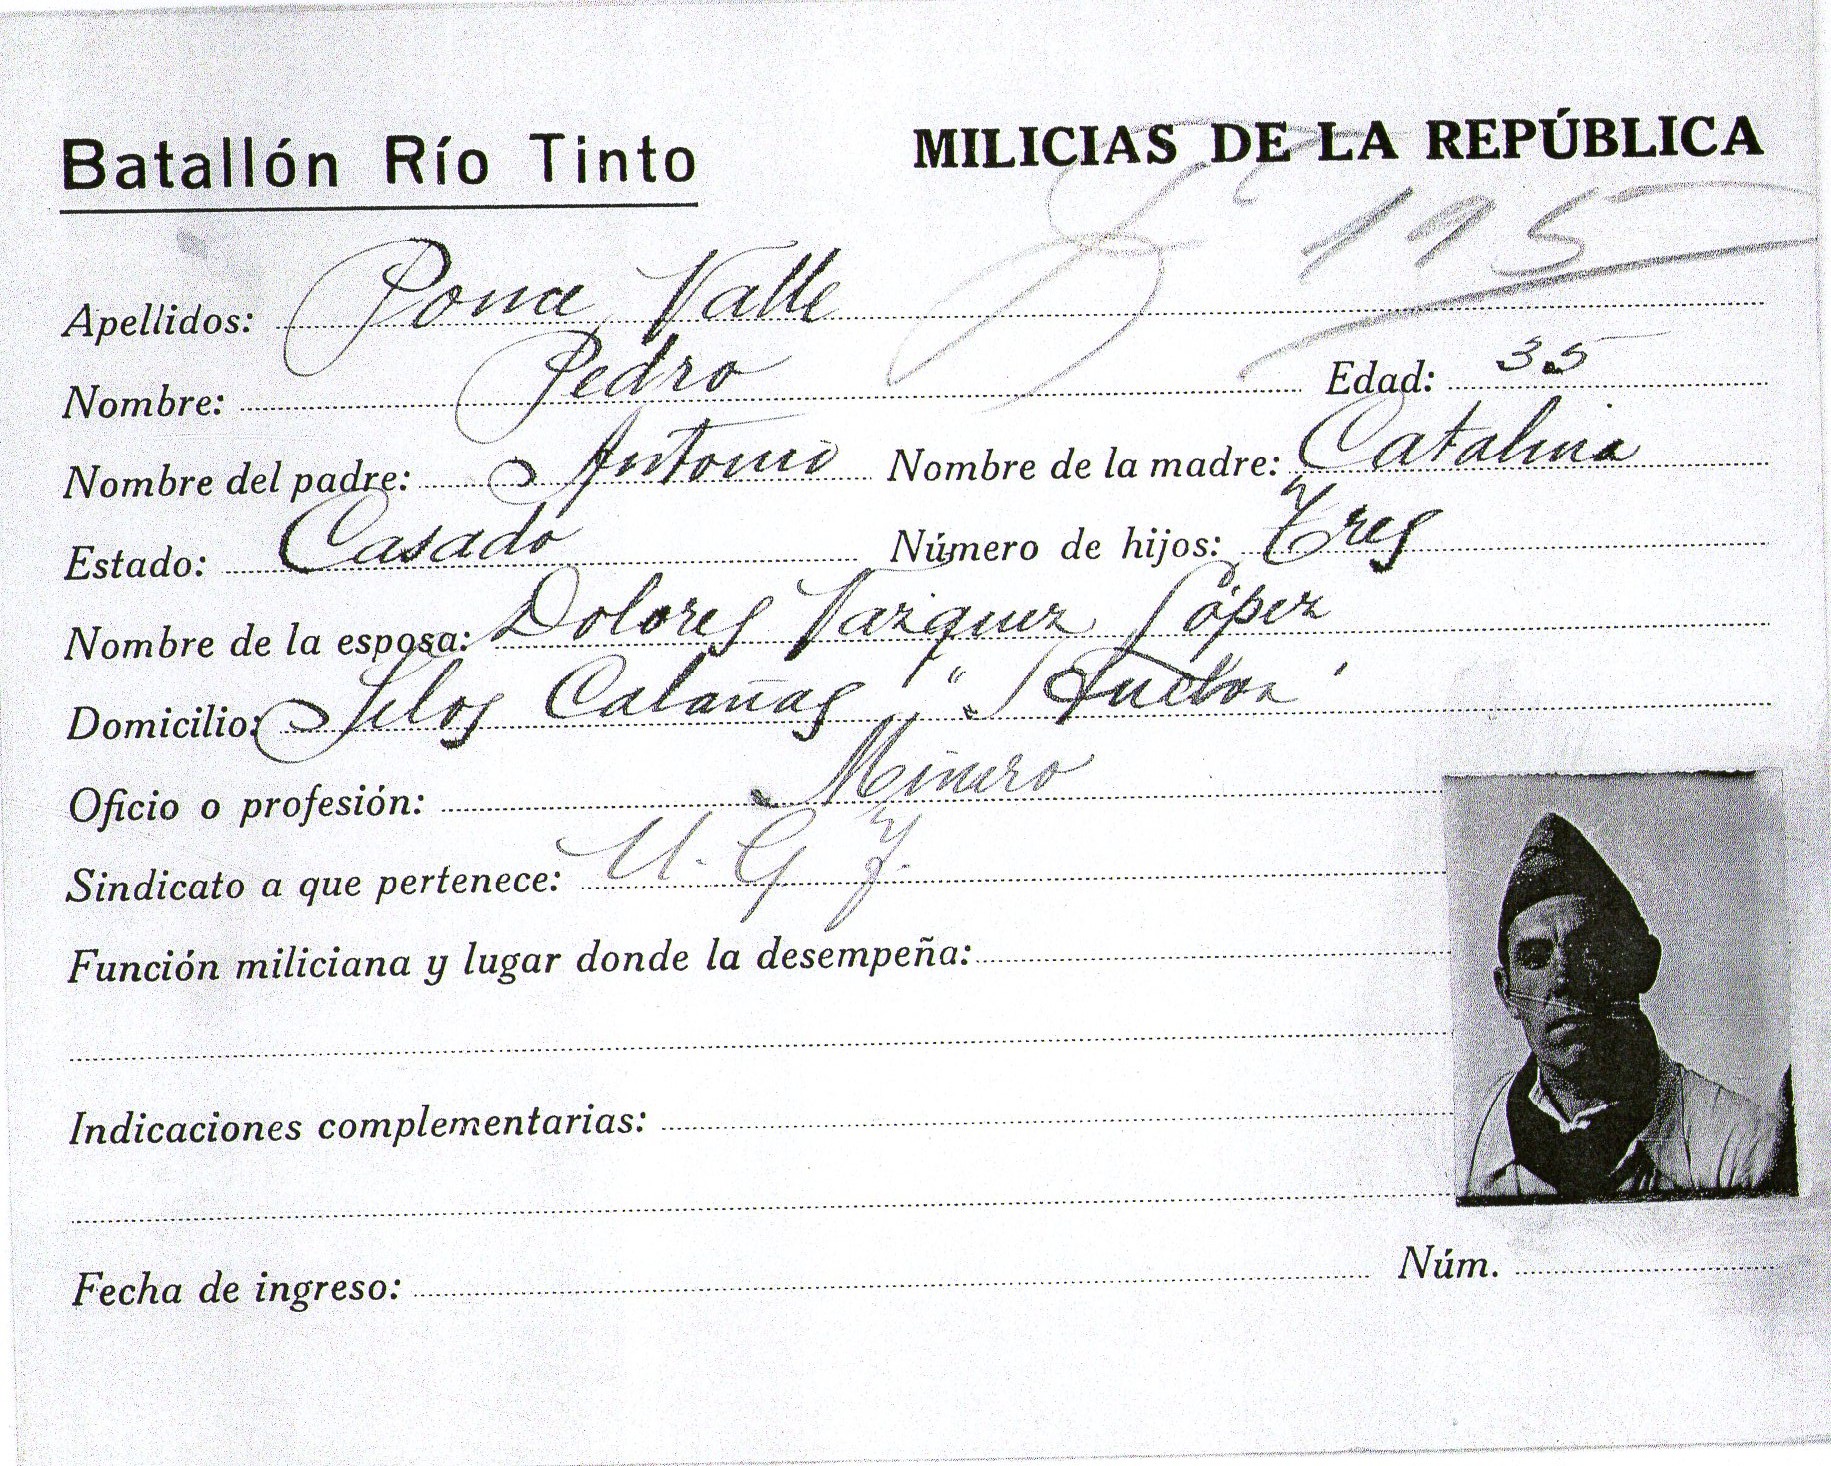 Batallón Río Tinto MILICIAS DE LA REPÚBLICA
195
Apellidos: Ponce Valle
Nombre: Pedro Edad: 35
Nombre del padre: Antonio Nombre de la madre: Catalina
Estado: Casado Número de hijos: Tres
Nombre de la esposa: Dolores Vazquez López
Domicilio: Silos Calañas "Huelva"
Oficio o profesión: Minero
Sindicato a que pertenece: U. G. T.
Función miliciana y lugar donde la desempeña:
Indicaciones complementarias:
Fecha de ingreso: Núm.